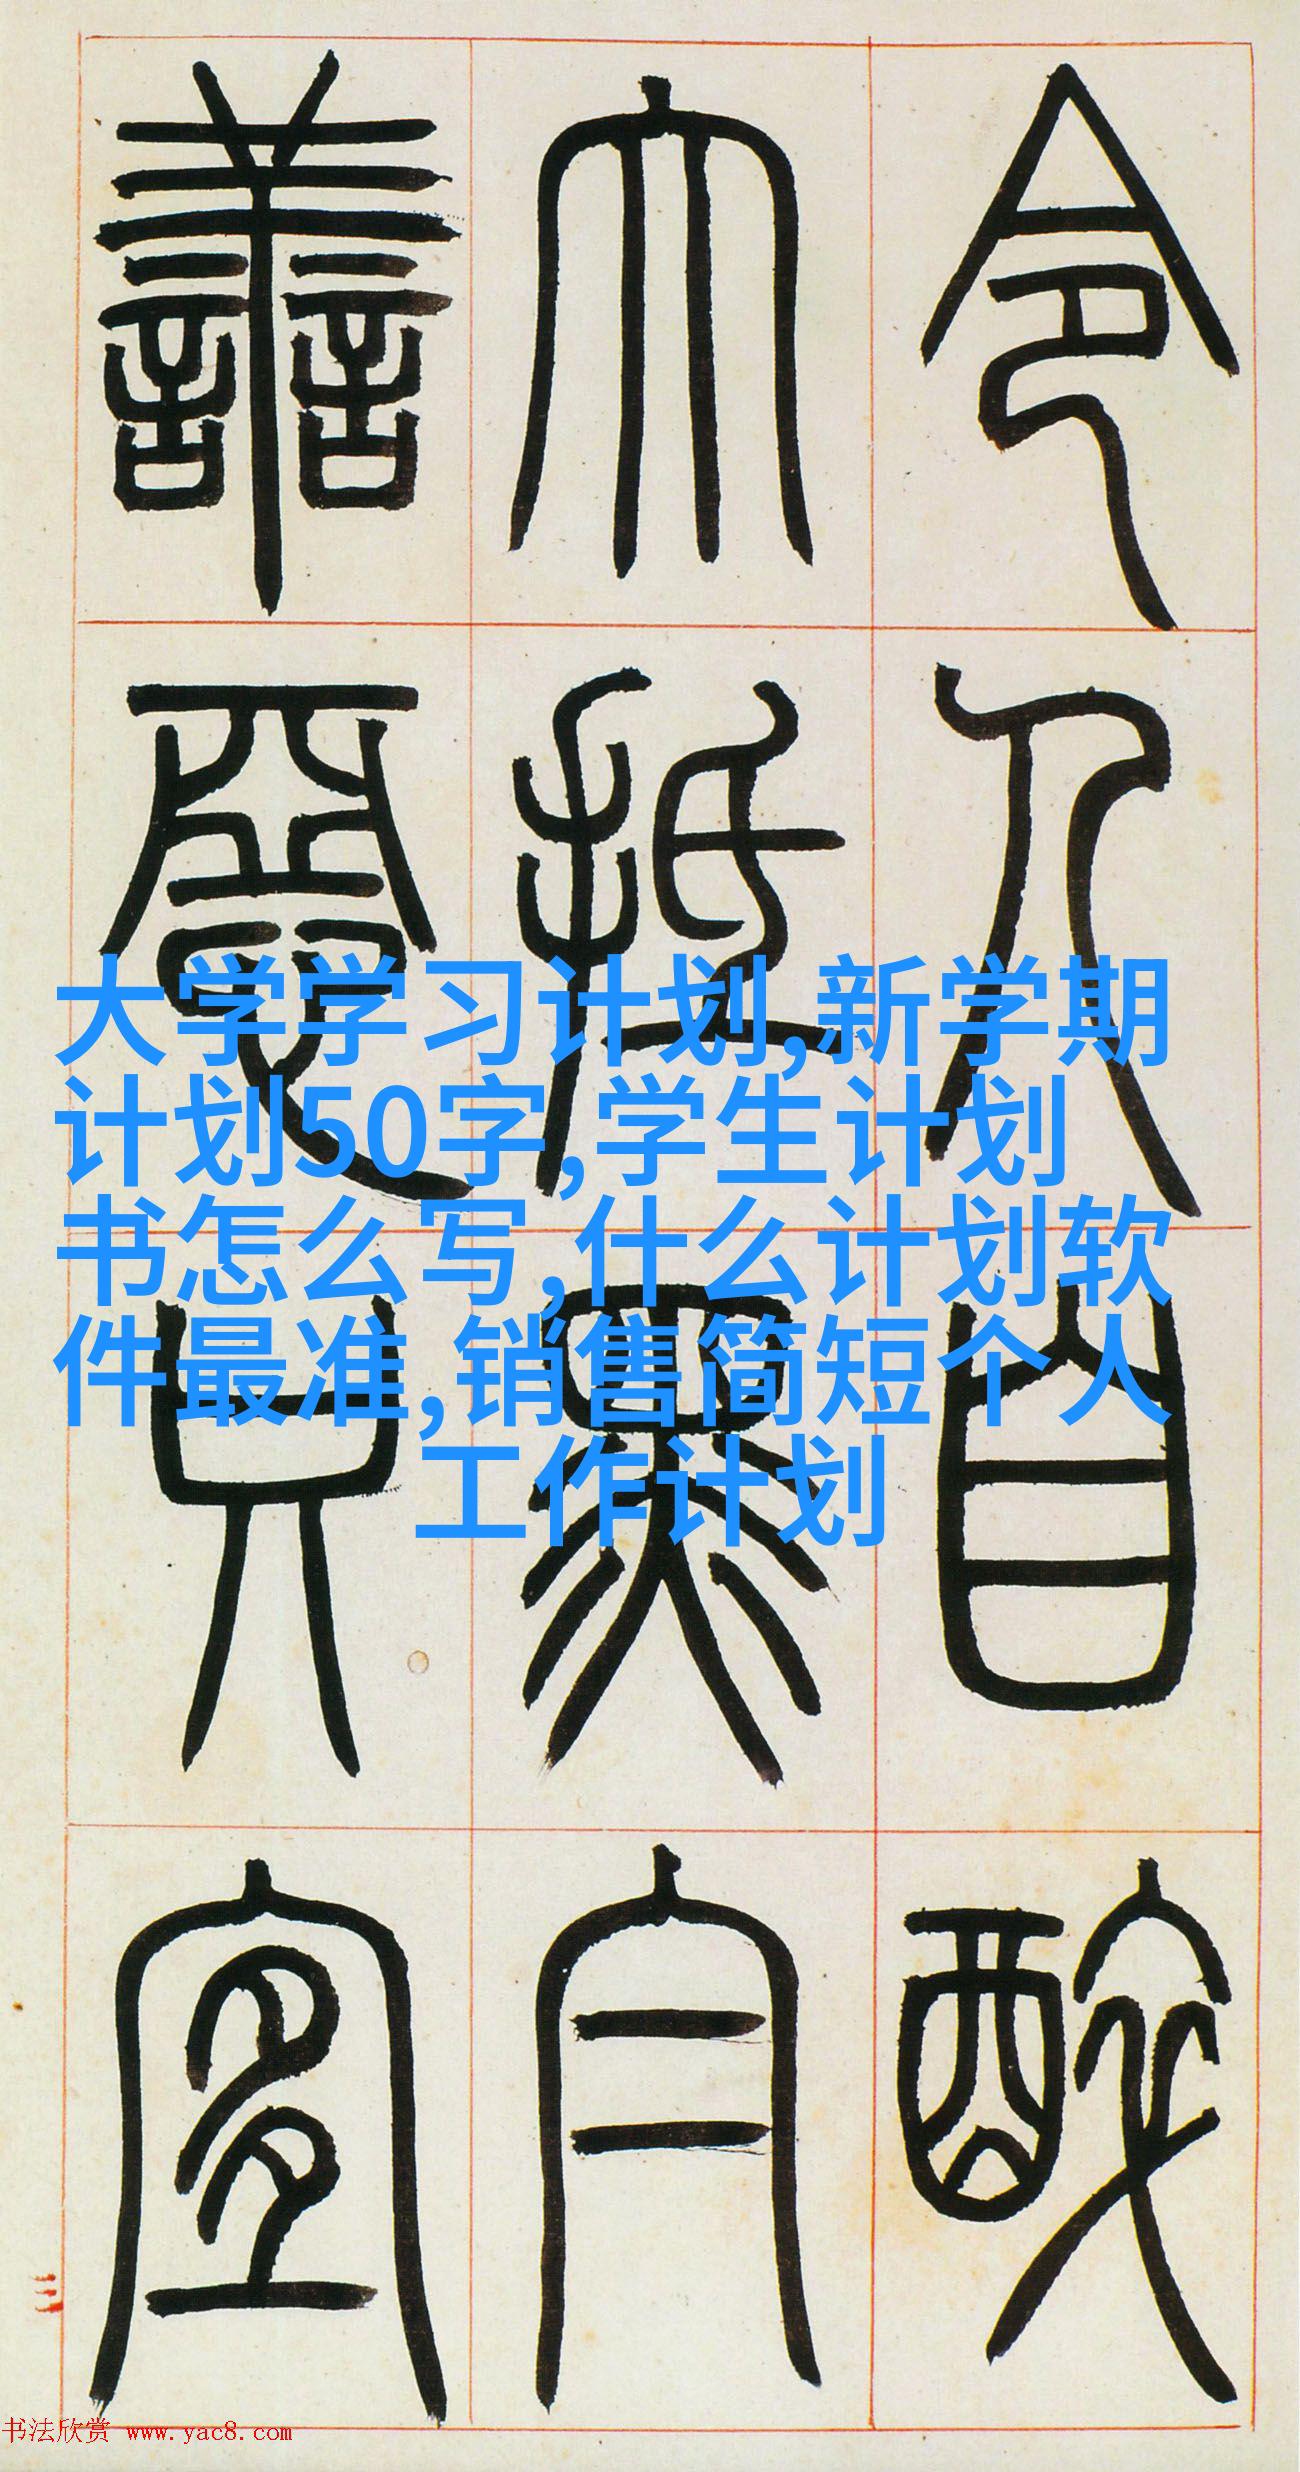 令人自醉
大抵黑白
譱惡只宜
大学学习计划,新学期
计划50字,学生计划
书怎么写,什么计划软
件最准,销售简短个人
工作计划
三
书法欣赏 www.yac8.com